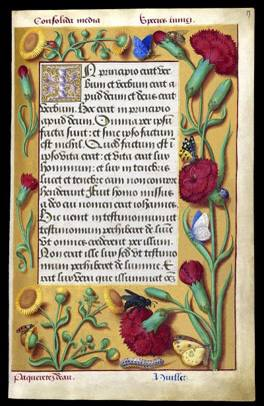 Consolida media Species iunugi.
In principio erat ver
bum et verbum erat a
pud deum et deus erat
verbum. Hoc erat in principio
apud deum. Omnia per ipsū
facta sunt: et sine ipso factum
est nichil. Quod factum est ī
ipso vita erat: et vita erat lux
hominum: et lux in tenebris
lucet et tenebre eam non compre
henderunt. Fuit homo missus
a deo cui nomen erat iohannes.
Hic venit in testimonium ut
testimonium perhiberet de lumīe
Vt omnes crederent per illum.
Non erat ille lux sed vt testimo
nium perhiberet de lumine. E
rat lux vera que illuminat